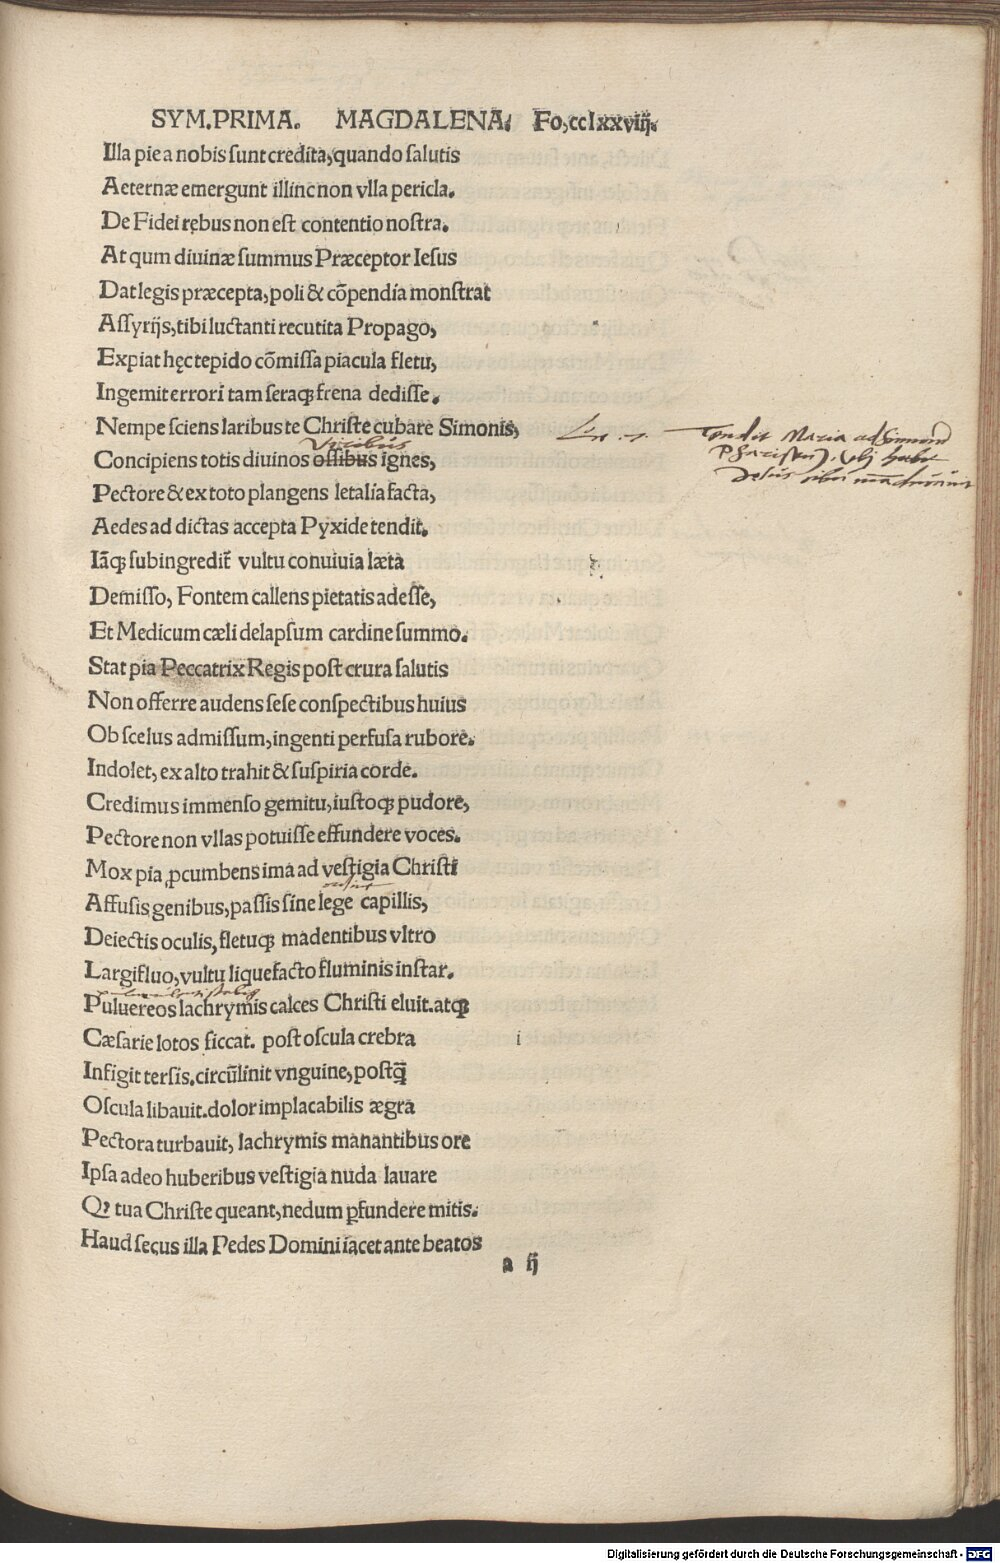 SYM.PRIMA. MAGDALENA. Fo,cclxxviij.
Illa pie a nobis sunt credita,quando salutis
Aeternæ emergunt illinc non vlla pericla.
De Fidei rębus non est contentio nostra.
At qum diuinæ summus Præceptor Iesus
Dat legis præcepta,poli & cōpendia monstrat
Assyrijs,tibi luctanti recutita Propago,
Expiat hęc tepido cōmissa piacula fletu,
Ingemit errori tam seraqȝ frena dedisse.
Nempe sciens laribus te Christe cubare Simonis,
Luc. 7. Tendit Maria ad Simonē
Viribus
Concipiens totis diuinos ossibus ignes,
Pectore & ex toto plangens letalia facta,
Aedes ad dictas accepta Pyxide tendit.
Iāqȝ subingredit̃ vultu conuiuia læta
Demisso, Fontem callens pietatis adesse,
Et Medicum cæli delapsum cardine summo.
Stat pia Peccatrix Regis post crura salutis
Non offerre audens sese conspectibus huius
Ob scelus admissum,ingenti perfusa rubore.
Indolet,ex alto trahit & suspiria corde.
Credimus immenso gemitu,iustoqȝ pudore,
Pectore non vllas potuisse effundere voces.
Mox pia ꝓcumbens ima ad vestigia Christi
Affusis genibus,passis sine lege capillis,
Deiectis oculis,fletuqȝ madentibus vltro
Largifluo,vultu liquefacto fluminis instar.
Puluereos lachrymis calces Christi eluit.atqȝ
Cæsarie lotos siccat. post oscula crebra
Infigit tersis.circūlinit vnguine,postq̄
Oscula libauit.dolor implacabilis ægra
Pectora turbauit, lachrymis manantibus ore
Ipsa adeo huberibus vestigia nuda lauare
Qȝ tua Christe queant,nedum ꝑfundere mitis.
Haud secus illa Pedes Domini iacet ante beatos
a ij
Digitalisierung gefördert durch die Deutsche Forschungsgemeinschaft - DFG